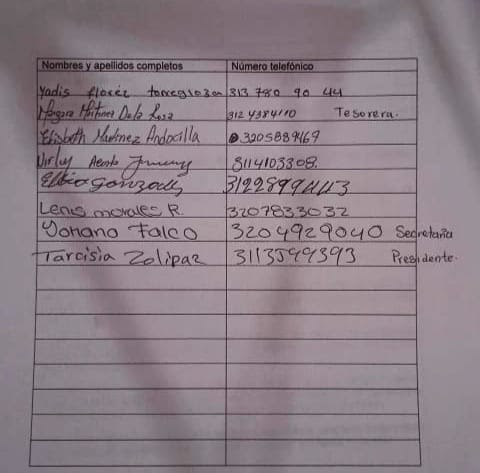 Nombres y apellidos completos Número telefónico
Yadis florez torreglosa 313 780 90 44
Martinez De La Rosa 312 4384110 Tesorera.
Elisbeth Martinez Andocilla 3205889169
3114103308.
Elbia gonzalez 3122899443
Lenis morales R. 3207833032
Yohana Falco 3204929040 Secretaria
Tarcisia Zolipaz 3113599393 Presidente.